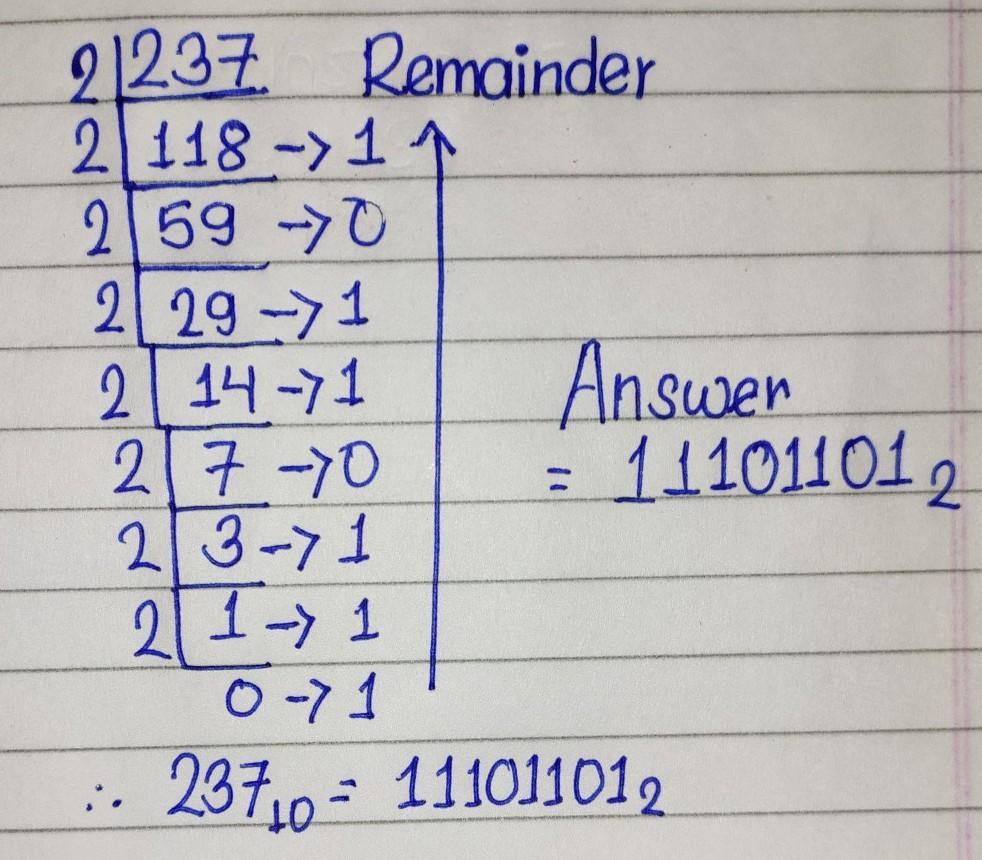 2 237 Remainder
2 118 -> 1
2 59 -> 0
2 29 -> 1
2 14 -> 1
2 7 -> 0
2 3 -> 1
2 1 -> 1
0 -> 1
Answer
= 11101101₂
∴ 237₁₀ = 11101101₂